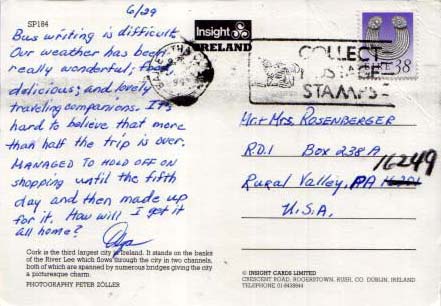 6/29
SP184
Bus writing is difficult.
Our weather has been
really wonderful;
delicious; and lovely
traveling companions. It's
hard to believe that more
than half the trip is over.
MANAGED TO HOLD OFF ON
shopping until the fifth
day and then made up
for it. How will I get it
all home?
Cork is the third largest city in Ireland. It stands on the banks
of the River Lee which flows through the city in two channels,
both of which are spanned by numerous bridges giving the city
a picturesque charm.
PHOTOGRAPHY PETER ZÖLLER
Insight
IRELAND
COLLECT
POSTAGE
STAMPS
38
Mr + Mrs. ROSENBERGER
R.D.1 Box 238A
16249
Rural Valley, PA 16201
U.S.A.
© INSIGHT CARDS LIMITED
CRESCENT ROAD, ROGERSTOWN, RUSH, CO. DUBLIN, IRELAND
TELEPHONE 01-8438844